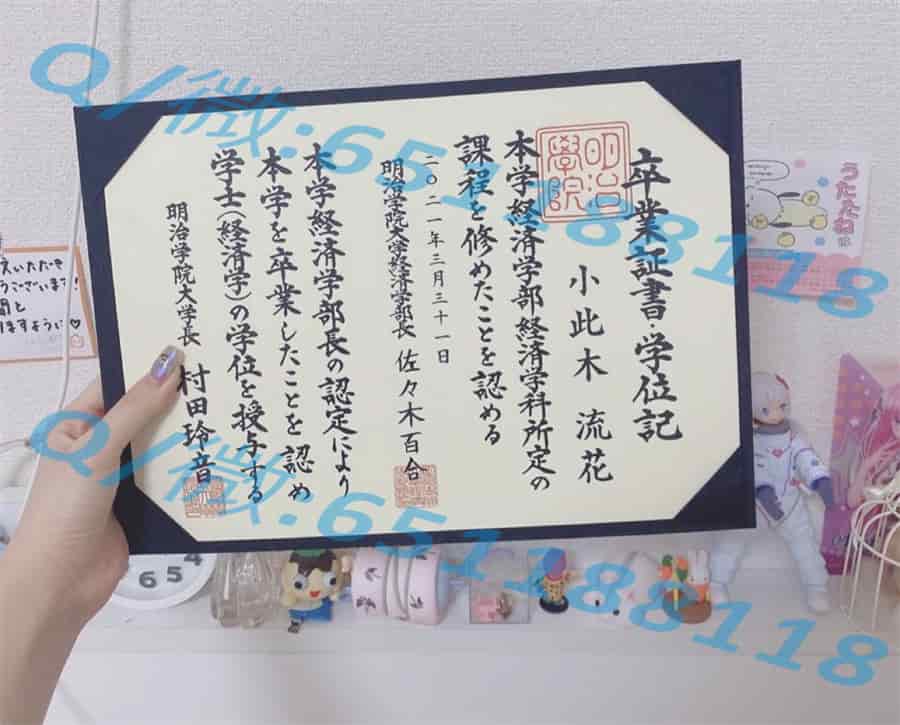 卒業証書・学位記
明治
學院
小此木 流花
本学経済学部経済学科所定の
課程を修めたことを認める
二〇二一年三月三十一日
明治学院大学経済学部長 佐々木百合
本学経済学部長の認定により
本学を卒業したことを認め
学士(経済学)の学位を授与する
明治学院大学長 村田玲音
Q/微:651188118
Q/微:651188118
うたたねは
6 5 4